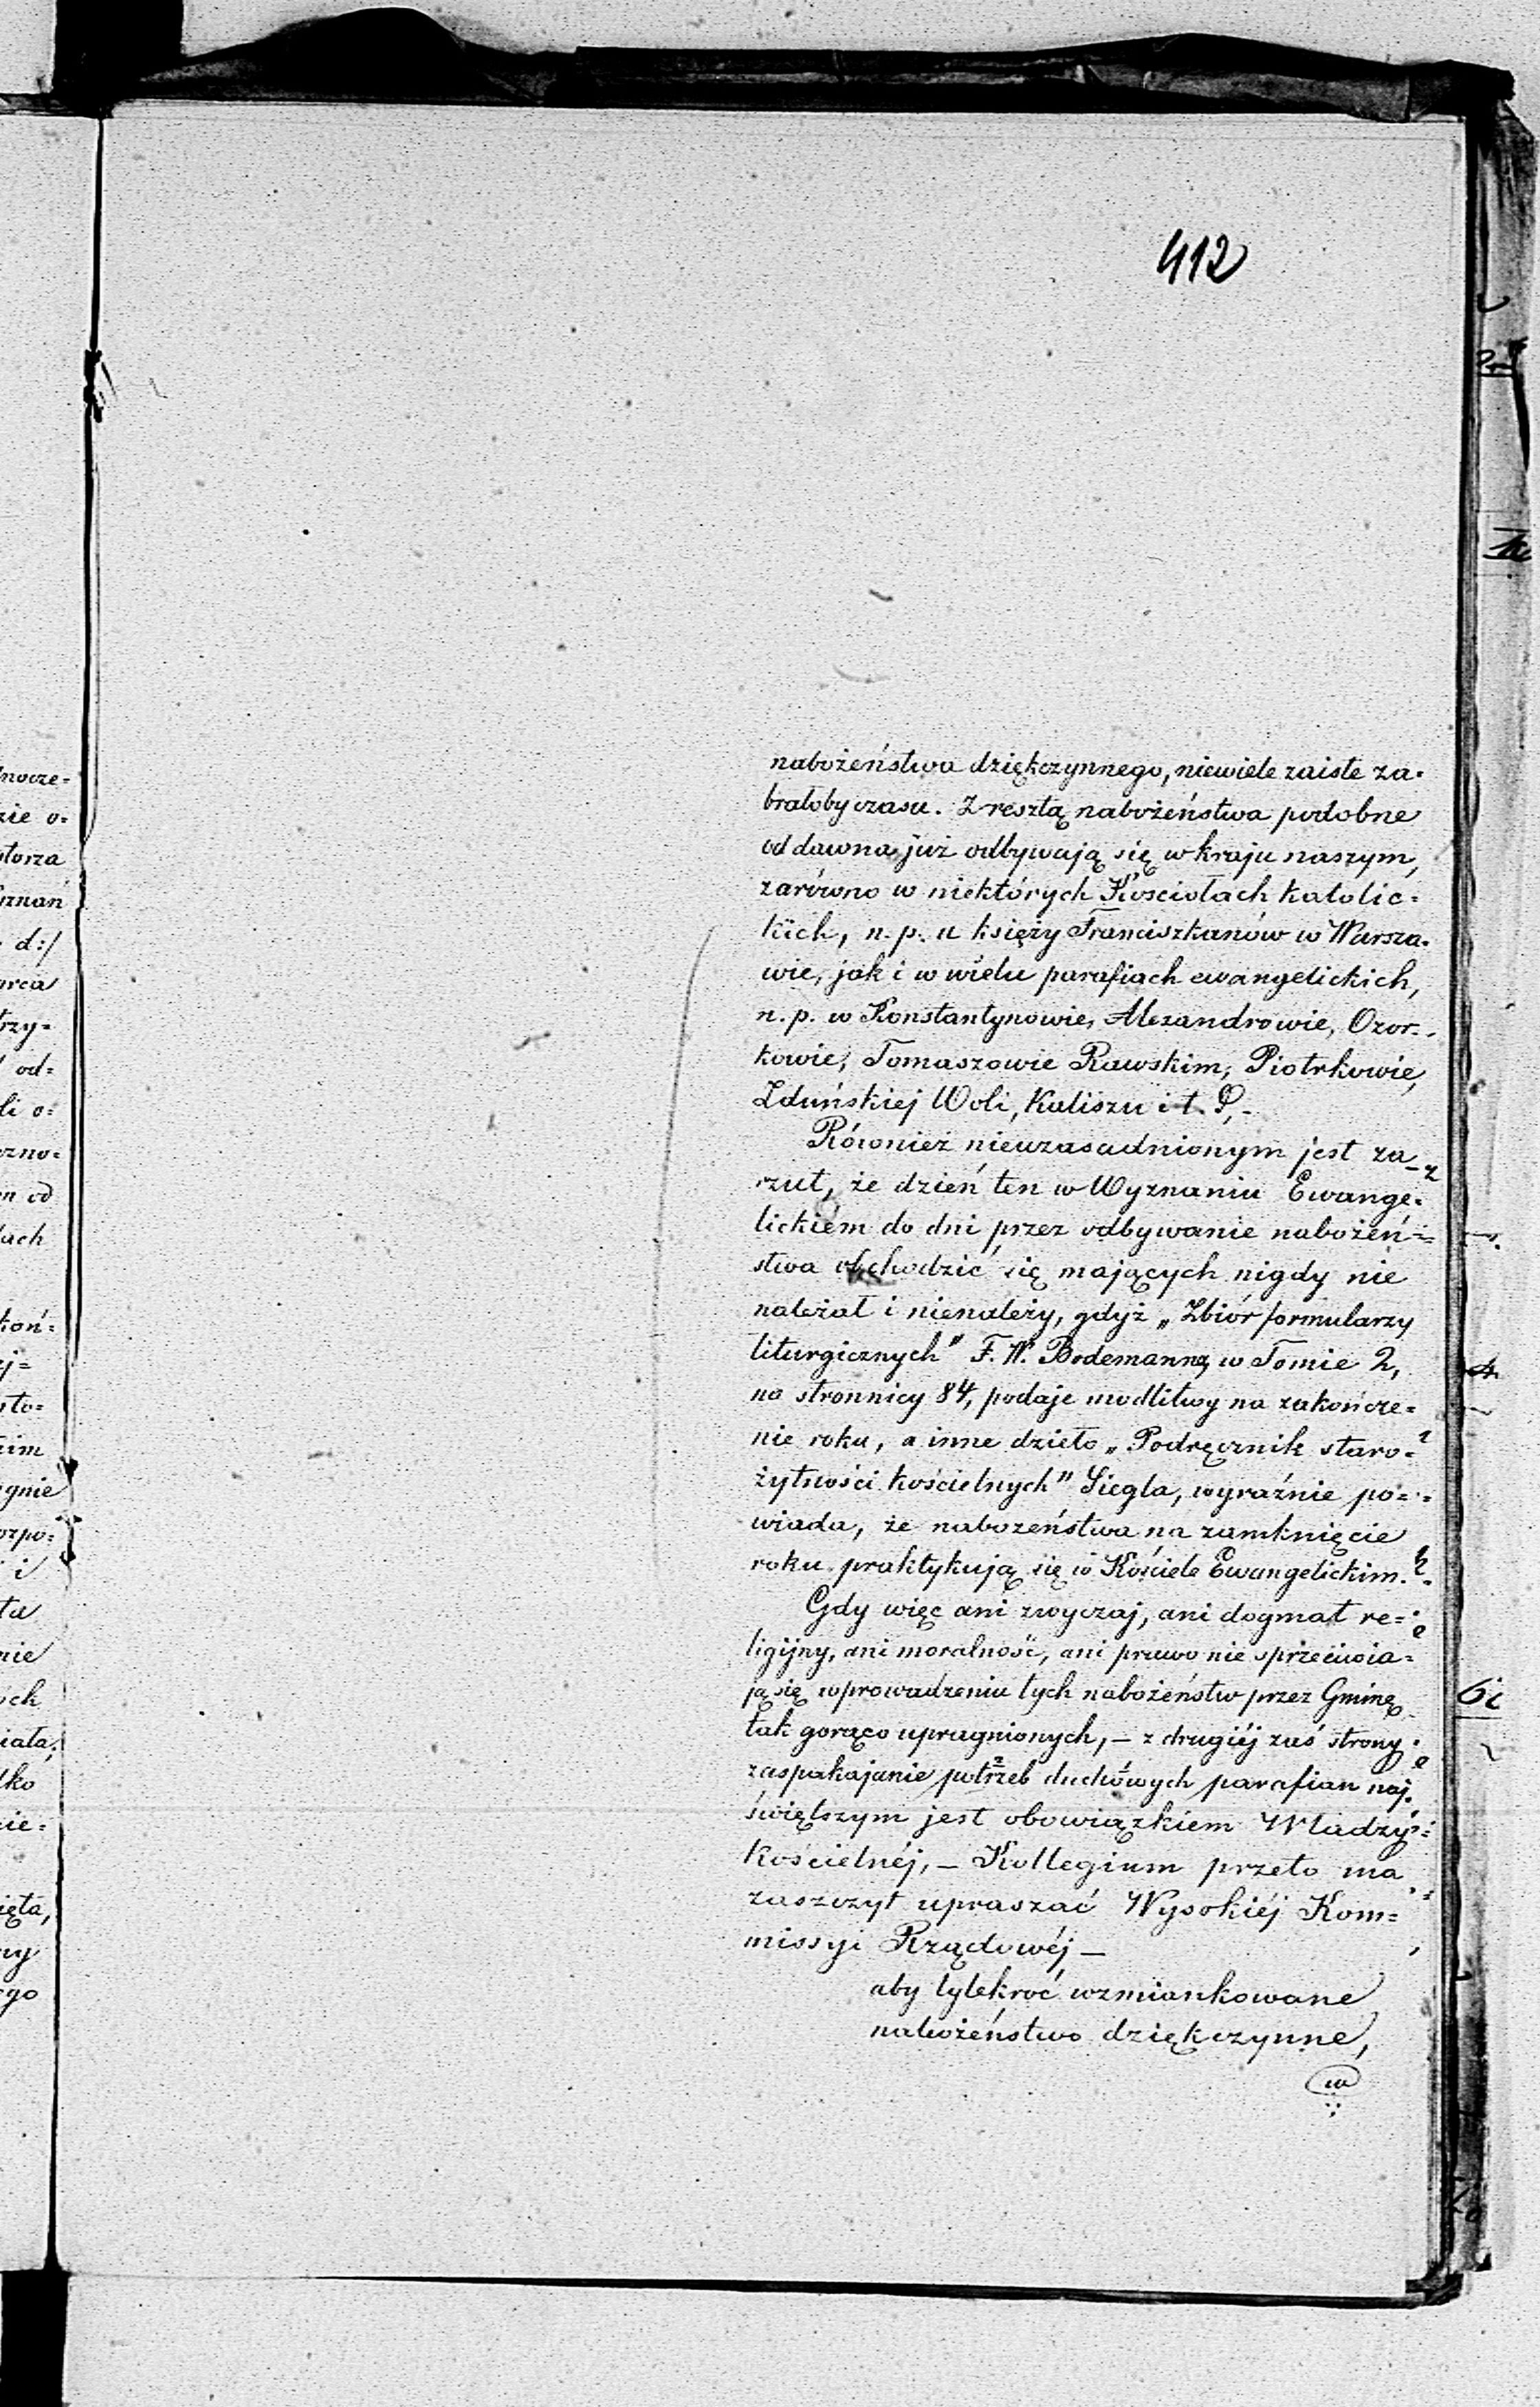 412
nabożeństwa dziękczynnego, niewiele zaiste za-
brałoby czasu. Zresztą nabożeństwa podobne
od dawna już odbywają się w kraju naszym,
zarówno w niektórych Kościołach katolic=
kich, n. p. u księży Franciszkanów w Warsza-
wie, jak i w wielu parafiach ewangelickich,
n. p. w Konstantynowie, Alexandrowie, Ozor-
kowie, Tomaszowie Rawskim, Piotrkowie,
Zduńskiej Woli, Kaliszu i t. P.-
Również nieuzasadnionym jest za-
rzut, że dzień ten w Wyznaniu Ewange-
lickiém do dni przez odbywanie nabożeń=
stwa obchodzić się mających nigdy nie
należał i nienależy, gdyż „Zbiór formularzy
liturgicznych" F. W. Bodemanna, w Tomie 2,
na stronnicy 84, podaje modlitwy na zakończe=
nie roku, a inne dzieło „Podręcznik staro=
żytności kościelnych" Siegla, wyraźnie po=
wiada, że nabożeństwa na zamknięcie
roku praktykują się w Kościele Ewangelickim.
Gdy więc ani zwyczaj, ani dogmat re=
ligijny, ani moralność, ani prawo nie sprzeciwia=
ją się wprowadzeniu tych nabożeństw przez Gminę
tak gorąco upragnionych, — z drugiéj zaś strony
zaspakajanie potrzeb duchowych parafian naj-
świętszym jest obowiązkiem Władzy
Kościelnéj, — Kollegium przeto ma
zaszczyt upraszać Wysokiéj Kom=
missyi Rządowéj —
aby tylekroć wzmiankowane
nabożeństwo dziękczynne,
w